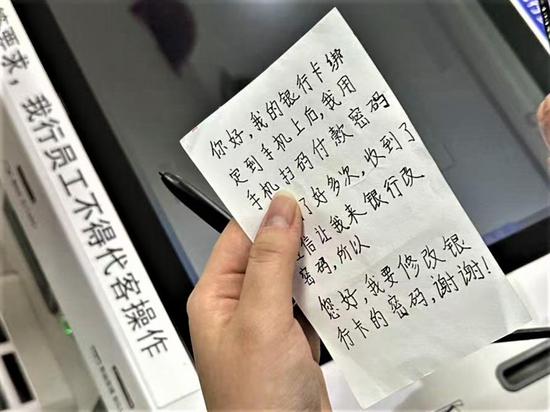 要求，我行员工不得代客操作
你好，我的银行卡绑
定到手机上后，我用
手机扫码付款密码
了好多次，收到了
信让我来银行改
密码，所以
您好，我要修改银
行卡的密码，谢谢！